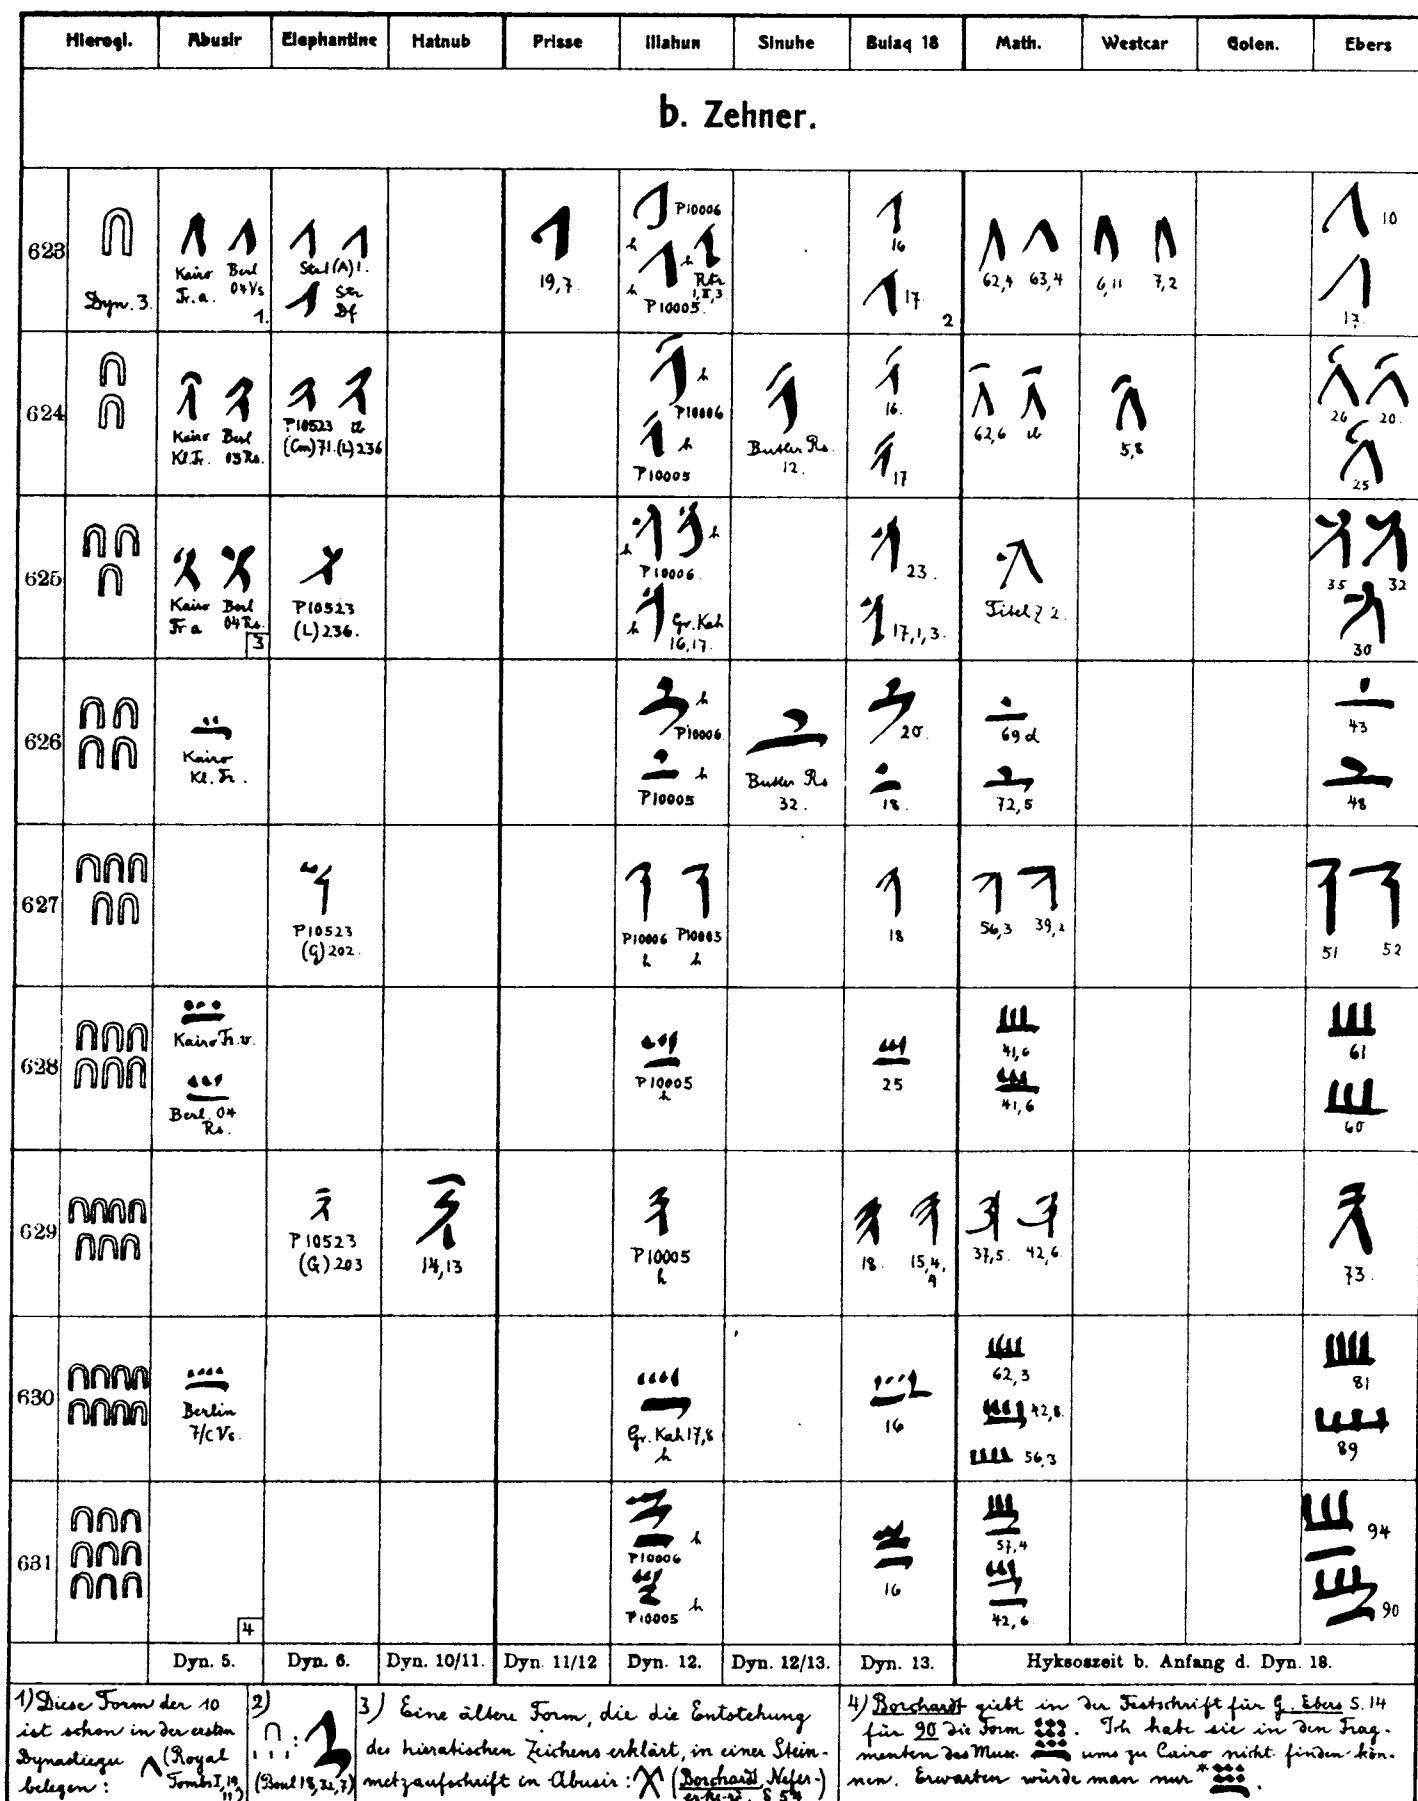 Hierogl. Abusir Elephantine Hatnub Prisse Illahun Sinuhe Bulaq 18 Math. Westcar Golen. Ebers
b. Zehner.
623
Dyn. 3.
Kairo Fr. a. Berl 04 Vs 1.
Str I (A) 1. Str Df
19,7.
P10006 h h Rtr I, II, 3 h P10005.
16 17. 2
62,4 63,4
6,11 7,2
10 17.
624
Kairo Kl. Fr. Berl 03 Rs.
P10523 (Cm) 71. (L) 236
h P10006 h P10005
Butler Rs. 12.
16. 17
62,6 ib
5,8
26 20. 25
625
Kairo Fr a Berl 04 Rs. 3
P10523 (L) 236.
h h P10006. h Gr. Kah 16,17.
23. 17,1,3.
Titel Z 2.
35 32 30
626
Kairo Kl. Fr.
h P10006 h P10005
Butler Rs 32.
20. 18.
69 d 72,5
43 48
627
P10523 (G) 202.
P10006 h P10005 h
18
56,3 39,2
51 52
628
Kairo Fr. v. Berl. 04 Rs.
P10005 h
25
41,6 41,6
61 60
629
P10523 (G) 203
14,13
P10005 h
18. 15,4,9
37,5. 42,6.
73.
630
Berlin 7/c Vs.
Gr. Kah 17,8 h
16
62,3 42,8. 56,3
81 89
631
4
P10006 h P10005 h
16
57,4 42,6
94 90
Dyn. 5. Dyn. 6. Dyn. 10/11. Dyn. 11/12 Dyn. 12. Dyn. 12/13. Dyn. 13. Hyksoszeit b. Anfang d. Dyn. 18.
1) Diese Form der 10
ist schon in der ersten
Dynastie zu
belegen: (Royal
Tombs I, 19,
11)
2)
(Boul 18, 32, 7)
3) Eine ältere Form, die die Entstehung
des hieratischen Zeichens erklärt, in einer Stein-
metzaufschrift in Abusir: (Borchardt, Nefer-
er-ke-re, S 54
4) Borchardt giebt in der Festschrift für G. Ebers S. 14
für 90 die Form . Ich habe sie in den Frag-
menten des Museums zu Cairo nicht finden kön-
nen. Erwarten würde man nur * .